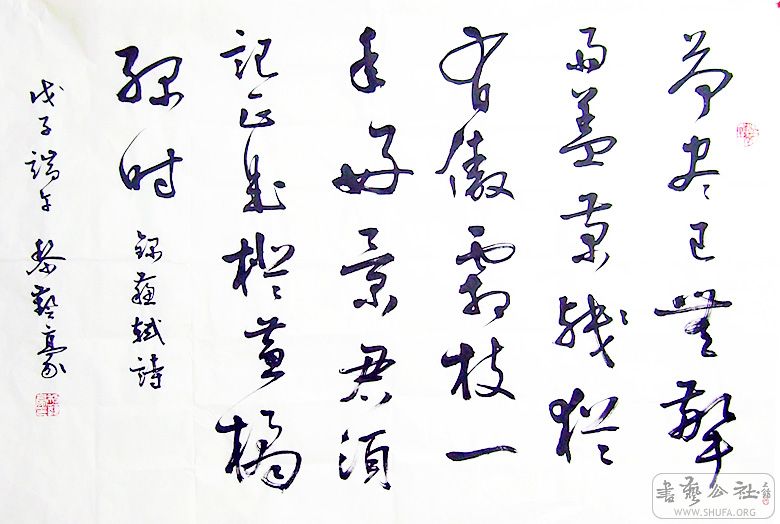 荷尽已無擎
雨盖菊残犹
有傲霜枝一
年好景君须
記正是橙黄橘
绿时 錄蘇軾詩
戊子端午 藝豪
書藝公社
WWW.SHUFA.ORG